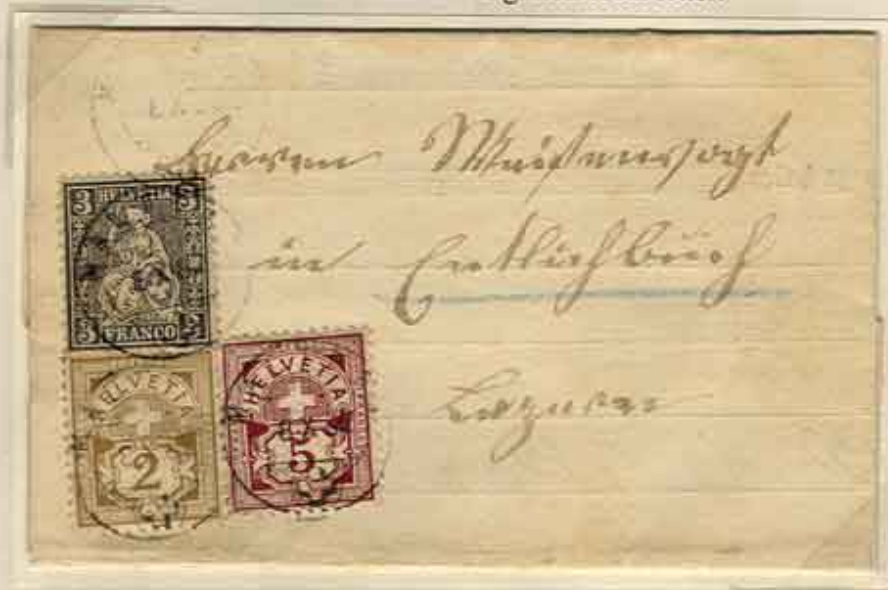 Herren Waisenvogt
in Entlichbuch
Luzern
3 HELVETIA 3
3 FRANCO 3
HELVETIA
2
HELVETIA
5